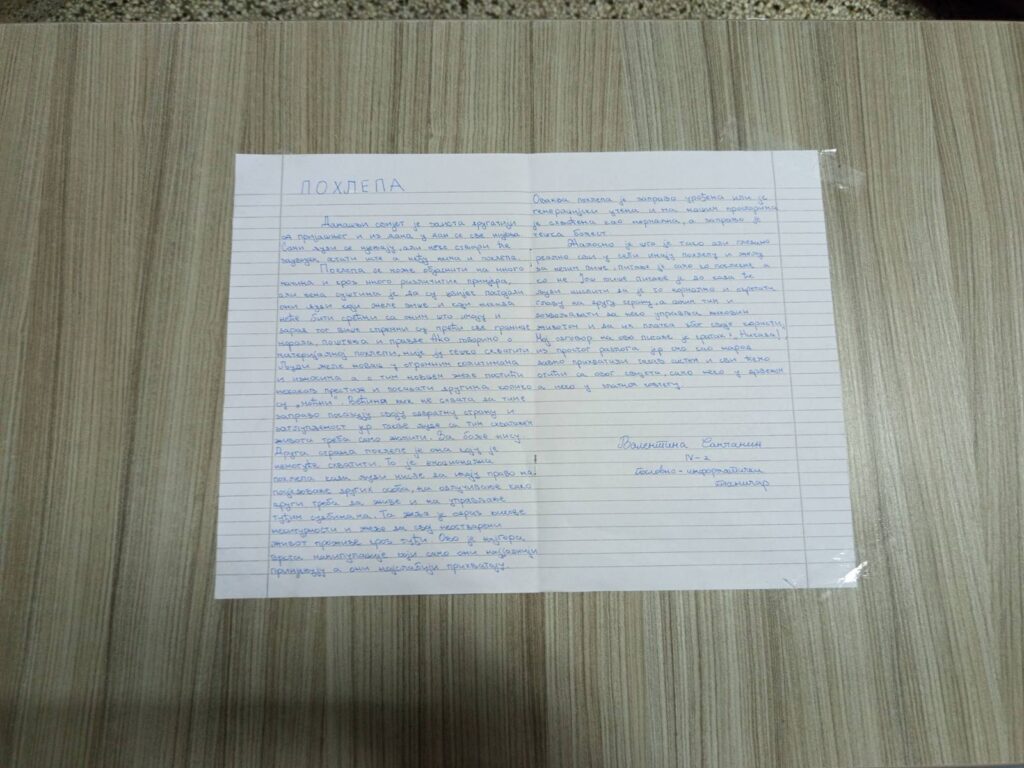 ПОХЛЕПА
Данашњи свијет је заиста другачији
од пријашњег и из дана у дан се све мијења.
Сами људи се мјењају, али неке ствари ће
заувијек остати исте а међу њима и похлепа.
Похлепа се може објаснити на много
начина и кроз много различитих примјера,
али њена суштина је да су њоме погођени
они људи који желе више и који никада
неће бити срећни са оним што имају и
зарад тог више спремни су прећи све границе
морала, поштења и правде. Ако говоримо о
материјалној похлепи, није је тешко схватити.
Људи желе новац у огромним количинама
и износима а с тим новцем желе постићи
некакав престиж и показати другима колико
су „моћни". Већина њих не схвата да тиме
заправо показују своју
заглупљеност јер такве људе са тим схватањем
живота треба само жалити. За боље нису.
Друга страна похлепе је она коју је
немогуће схватити. То је емоционална
похлепа када људи мисле да имају право на
посједовање других особа, на одлучивање како
други треба да живе и на управљање
туђим судбинама. Та жеља је одраз њихове
несигурности и жеље да свој неостварени
живот проживе кроз туђи. Ово је најгора
врста манипулације који само они најјаднији
примјењују а они најслабији прихватају.
Оваква похлепа је заправо урођена или је
генерацијски учена и на нашим просторима
је схваћена као нормална, а заправо је
тешка болест.
Жалосно је што је тако али гледано
реално сви у себи имају похлепу и жељу
за нечим више, питање је само ко
ко не. Још веће питање је до када ће
људи мислити да је то нормално и окретати
главу на другу страну, а самим тим и
дозвољавати да неко управља њиховим
животом и да их плаћа због своје користи.
Мој одговор на ово питање је кратак: „Никада!",
из простог разлога јер смо сви народ
тешко прихватити истину и сви ћемо
отићи са овог свијета, само неко у дрвеном
а неко у златном ковчегу.
Валентина
IV-2
Пословно-информатички
техничар